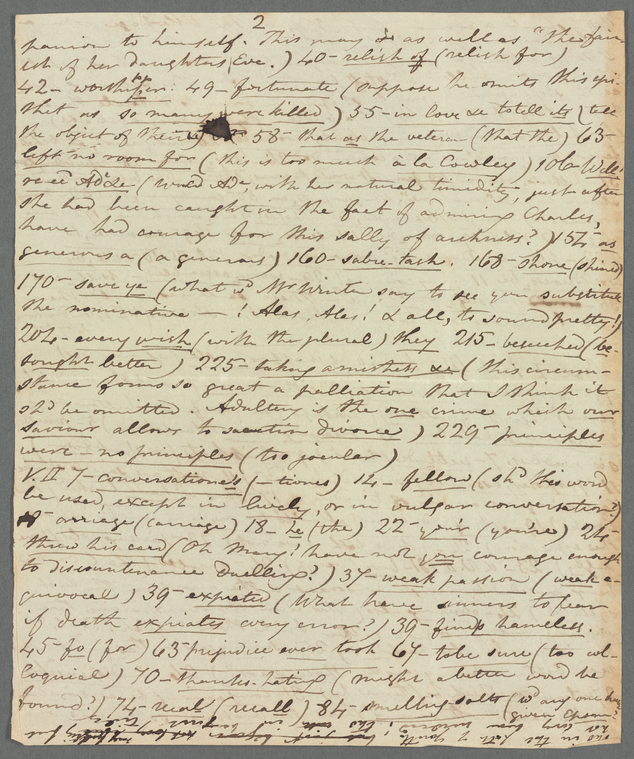 2
panion to himself. This may do as well as "the fair-
est of her daughters, Eve.) 40 - relish of (relish for)
42 - worthiffer. 49 - fortunate (suppose he omits this epi-
thet as so many were killed) 55 - in love &c to tell its (tell
the object of their 58 - that as the veteran (that the) 63 -
left no room for (this is too much à la Cowley) 106 Will
re-ed Ad &c (would Ad, with her natural timidity, just after
she had been caught in the fact of admiring Charles,
have had courage for this sally of archness?) 154 - as
generous a (a generous) 160 - sabre-tash. 168 - shone (shined)
170 - save ye (what wd Mr Winter say to see you substitute
the nominative - ! Alas, Alas! & all, to sound pretty!)
204 - every wish (with the plural) they 215 - beseeched (be-
sought better) 225 - taking amistress &c (this circum-
stance forms so great a palliation that I think it
shd be omitted. Adultery is the one crime which our
Saviour allows to sanction divorce) 229 - principles
were - no principles (too jocular)
V. II 7 - conversatione's (-tiones) 14 - fellow (shd this word
be used, except in lively, or in vulgar conversation?)
arriage (carriage) 18 - he (the) 22 - your (you're) 24 -
threw his card (Oh Mary! have not you courage enough
to discountenance duelling?) 37 - weak passion (weak e-
quivocal) 39 - expiated (What have sinners to fear
if death expiates every error?) 39 - finds hameless.
45 fo (for) 63 prejudice ever took 67 - to be sure (too col-
loquial) 70 - thanks-hating (might a better word be
found?) 74 - recal (recall) 84 - smelling salts (wd any one have
given them